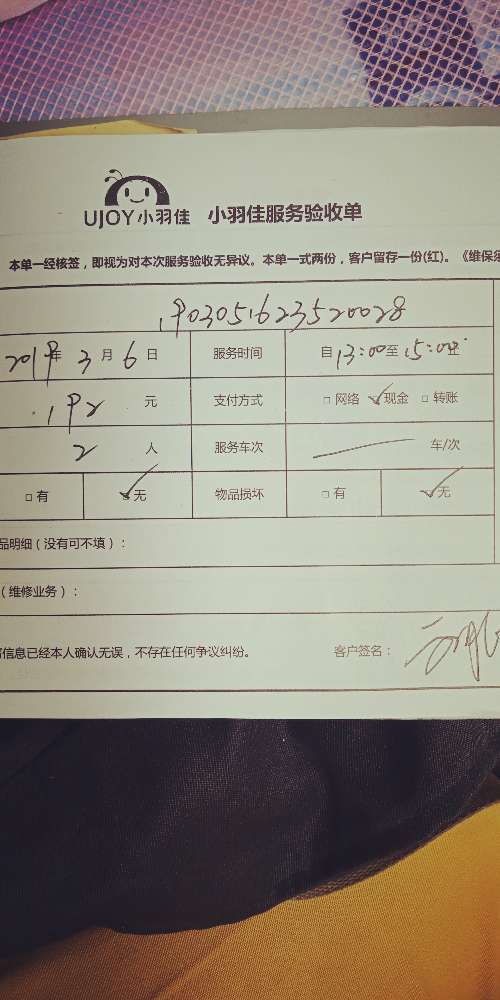 UJOY小羽佳 小羽佳服务验收单
本单一经核签，即视为对本次服务验收无异议。本单一式两份，客户留存一份(红)。《维保须
1903051623520028
2019年 3月 6日 服务时间 自13:00至15:00止
192 元 支付方式 □网络 ☑现金 □转账
2 人 服务车次 车/次
□有 ☑无 物品损坏 □有 ☑无
品明细（没有可不填）：
（维修业务）：
信息已经本人确认无误，不存在任何争议纠纷。 客户签名：